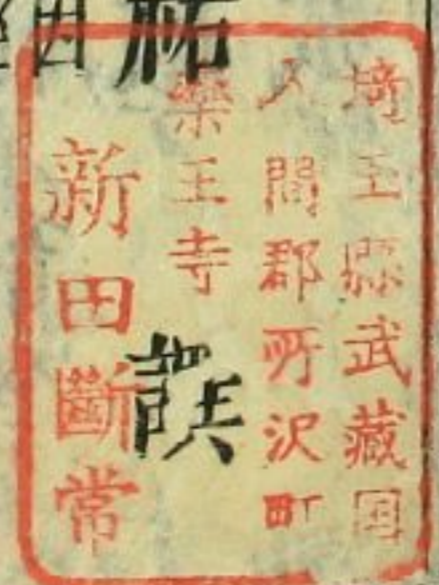 埼玉縣武藏国
入間郡所沢町
藥王寺
新田斷常